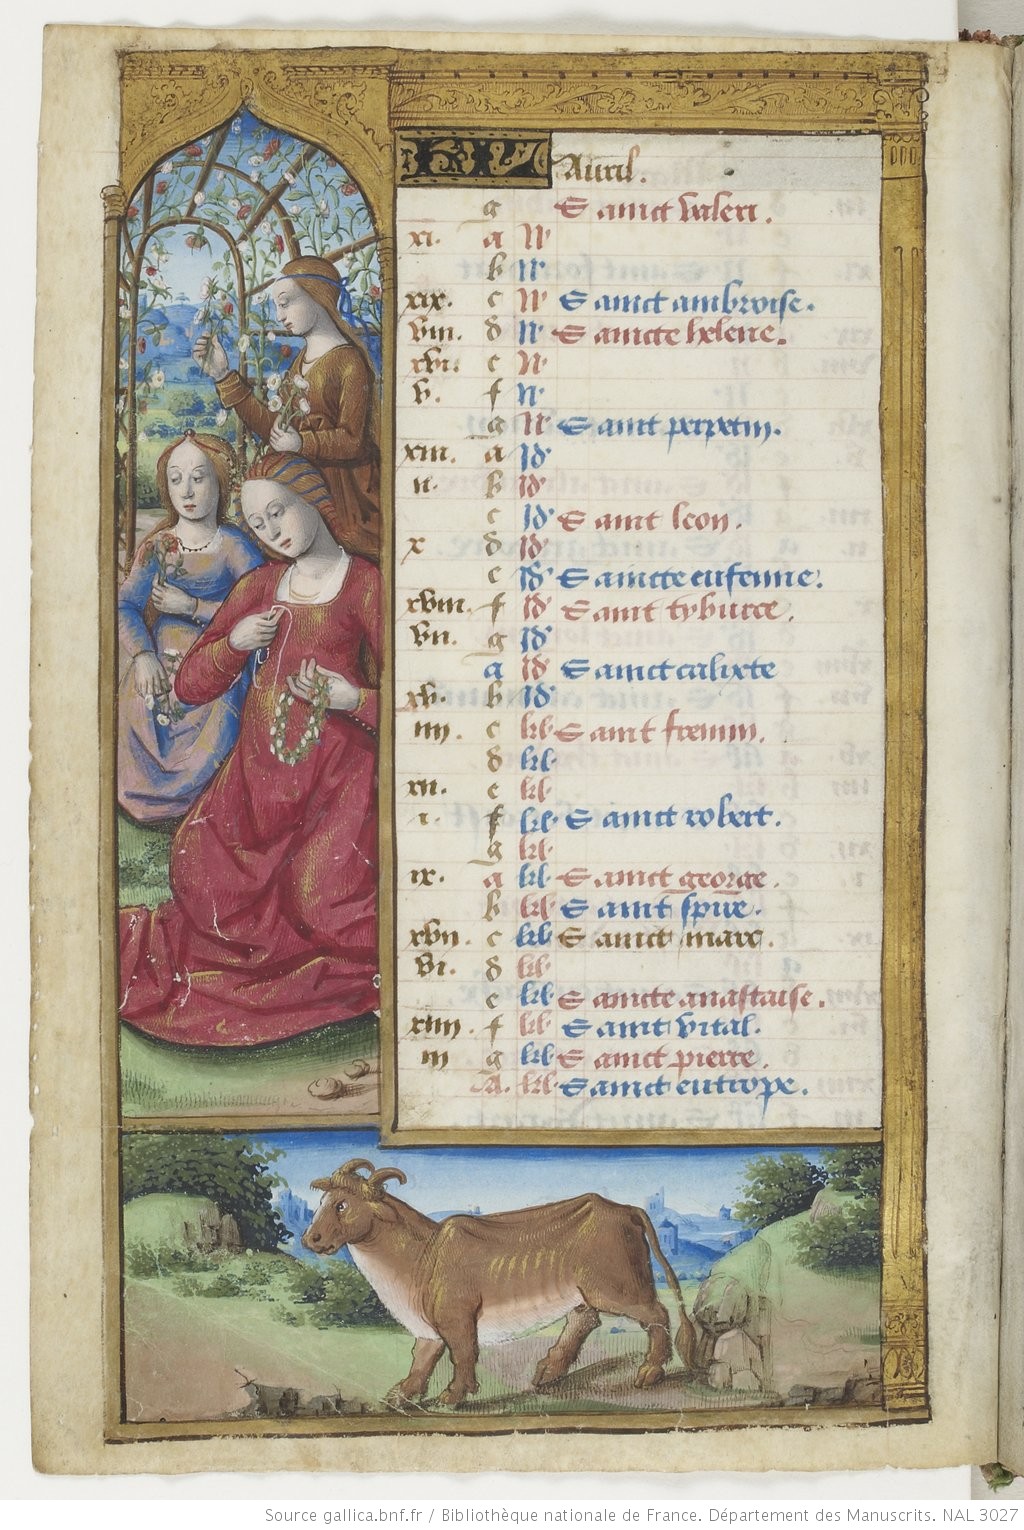 Auril.
g Sainct valeri.
xi. a N
b N
xix. c N Sainct ambroise.
viii. d N Saincte helene.
xvi. e N
v. f N
g N Sainct perpetin.
xiii. a Id
ii. b Id
c Id Sainct leon.
x d Id
e Id Saincte eufenne.
xviii. f Id Sainct tyburce.
vii. g Id
a Id Sainct calixte
xv. b Id
iiii. c kl Sainct fremin.
d kl
xii. e kl
i. f kl Sainct robert.
g kl
ix. a kl Sainct george.
b kl Sainct spire.
xvii. c kl Sainct marc.
vi. d kl
e kl Saincte anastaise.
xiiii. f kl Sainct vital.
iii g kl Sainct pierre.
A. kl Sainct eutrope.
Source gallica.bnf.fr / Bibliothèque nationale de France. Département des Manuscrits. NAL 3027